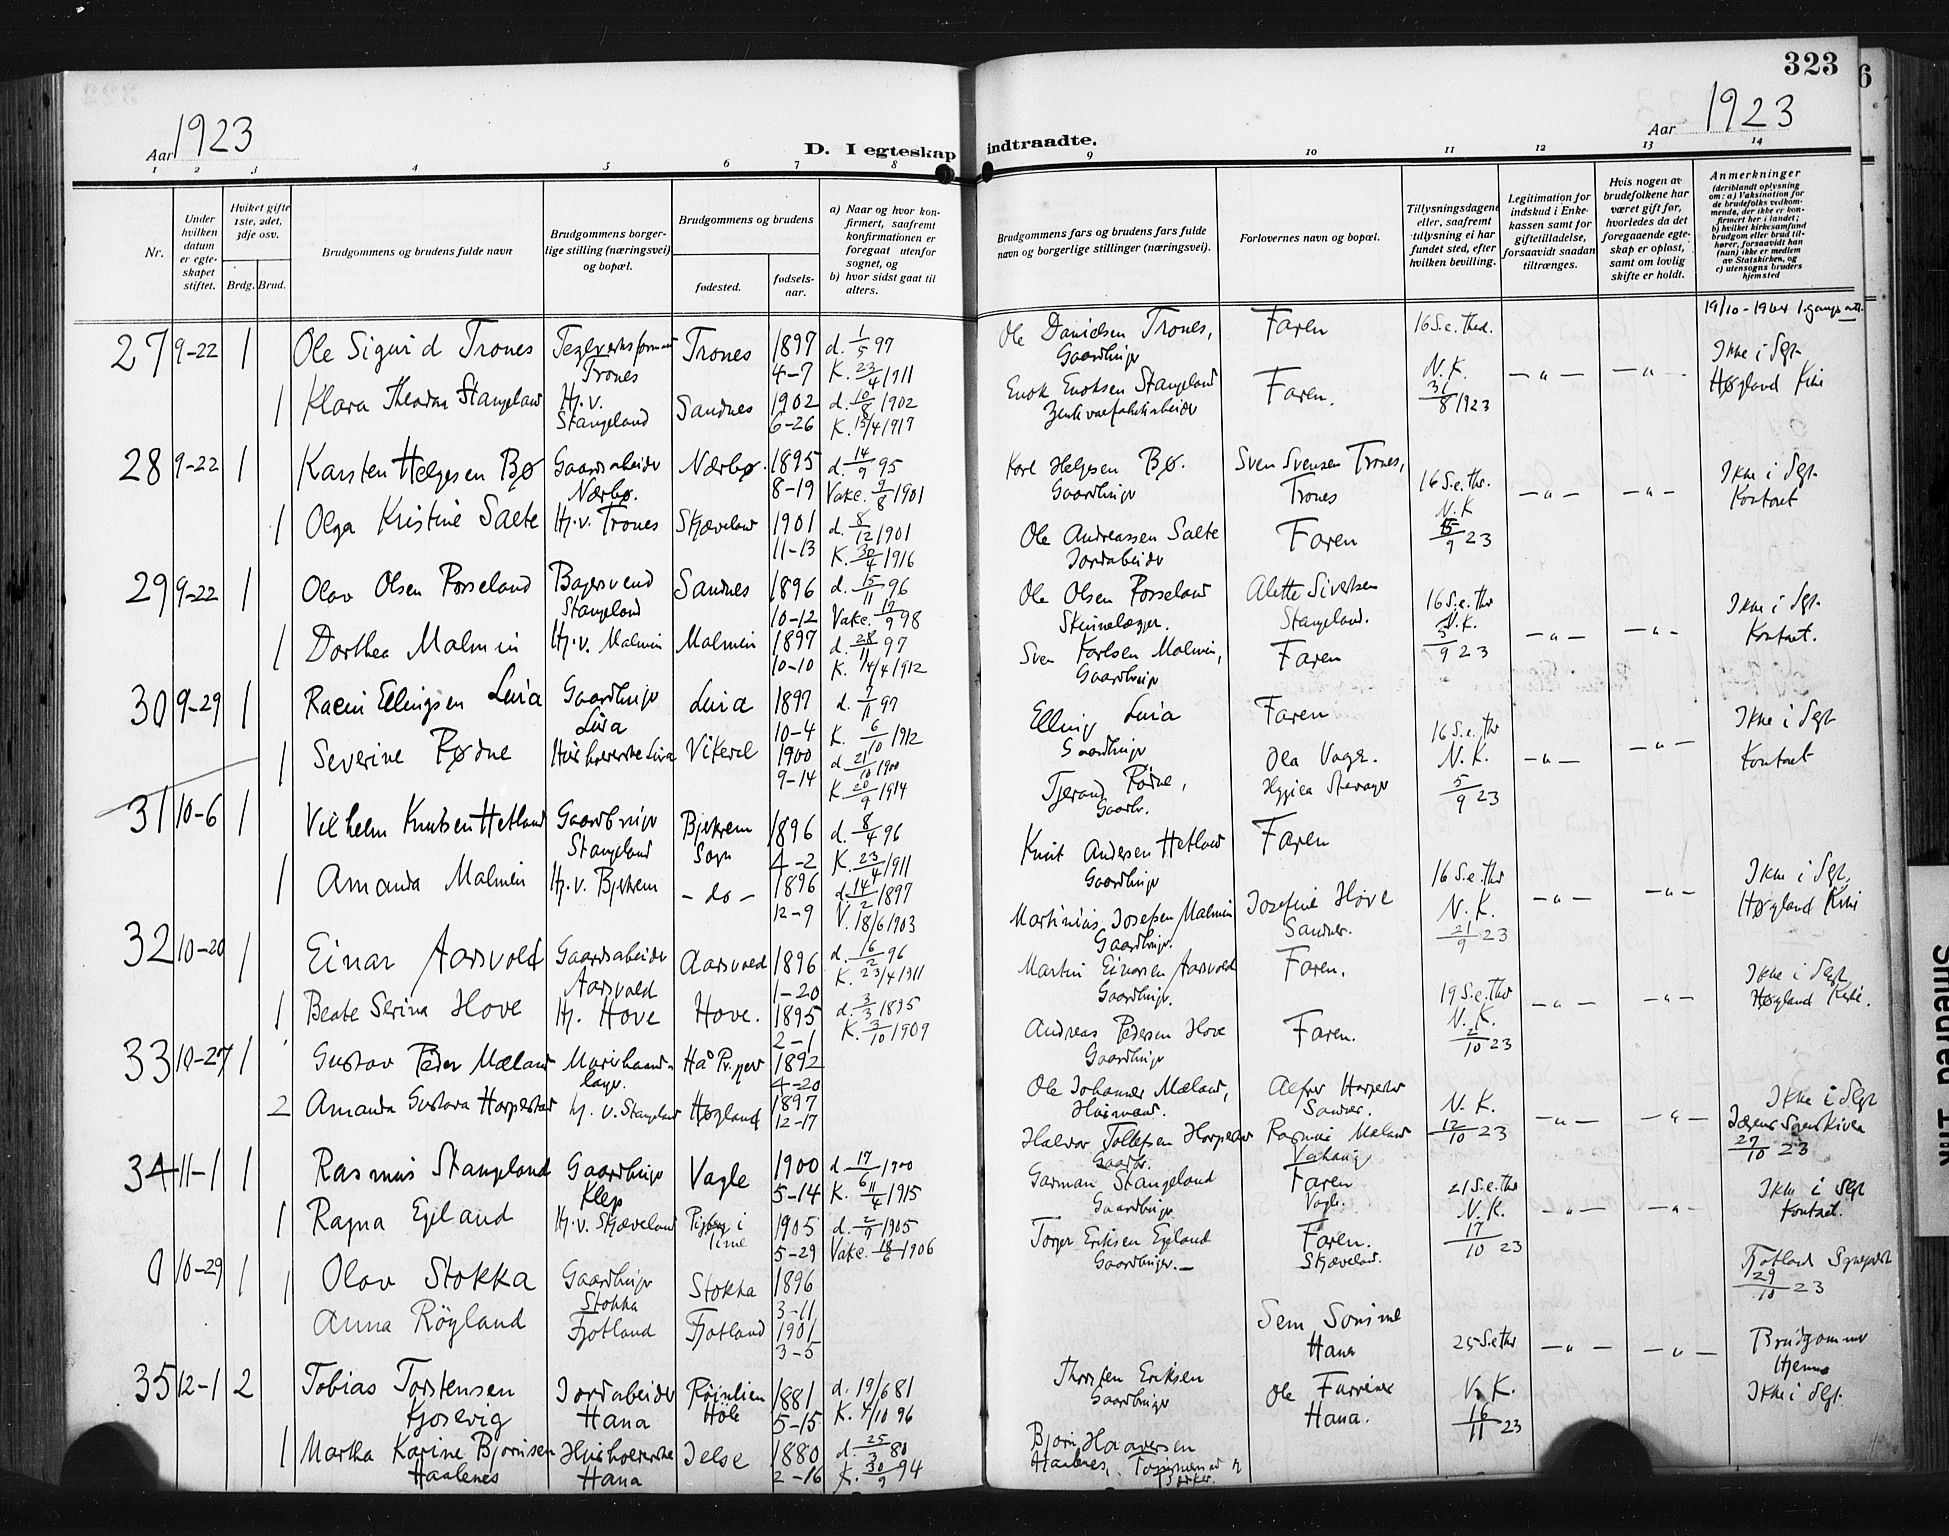 323
Aar 1923
Aar 1923
D. I egteskap indtraadte.
1 2 3 4 5 6 7 8 9 10 11 12 13 14
Nr.
Under hvilken datum er egteskapet stiftet.
Hvilket gifte 1ste, 2det, 3dje osv.
Brdg. Brud.
Brudgommens og brudens fulde navn
Brudgommens borgerlige stilling (næringsvei) og bopæl.
Brudgommens og brudens
fødested.
fødselsaar.
a) Naar og hvor konfirmert, saafremt konfirmationen er foregaat utenfor sognet, og
b) hvor sidst gaat til alters.
Brudgommens fars og brudens fars fulde navn og borgerlige stillinger (næringsvei).
Forlovernes navn og bopæl.
Tillysningsdagene eller, saafremt tillysning ei har fundet sted, efter hvilken bevilling.
Legitimation for indskud i Enkekassen samt for giftetilladelse, forsaavidt saadan tiltrænges.
Hvis nogen av brudefolkene har været gift før, hvorledes da det foregaaende egteskap er opløst, samt om lovlig skifte er holdt.
Anmerkninger
(deriblandt oplysning om: a) Vaksination for de brudefolks vedkommende, der ikke er konfirmert her i landet; b) hvilket kirkesamfund brudgom eller brud tilhører, forsaavidt han (hun) ikke er medlem av Statskirken, og c) utensogns bruders hjemsted
27 9-22 1 Ole Sigurd Trones Trones Trones 1897 4-7 d. 1/5 97 K. 23/4 1911 Ole Danielsen Trones, Gaardbruger Faren 16 S.e. Tred. N.K. 31/8 1923 Ikke i Slgt. Høyland Kirke
1 Klara Theodora Stangeland Hj.v. Stangeland Sandnes 1902 6-26 d. 10/8 1902 K. 15/4 1917 Enok Enoksen Stangeland Faren.
28 9-22 1 Karsten Helgesen Bø Gaardsarbeider Nærbø. Nærbø. 1895 8-19 d. 14/9 95 Vakc. 9/8 1901 Karl Helgesen Bø. Gaardbruger Sven Svensen Trones, Trones 16 S.e. Thr. N.K 15/9 23 Ikke i Slgt. Kontoret
1 Olga Kristine Salte Hj.v. Trones Skjæveland 1901 11-13 d. 8/12 1901 K. 30/4 1916 Ole Andreassen Salte Jordarbeider Faren
29 9-22 1 Olav Olsen Rosseland Bagersvend Stangeland Sandnes 1896 10-12 d. 15/11 96 Vakc. 17/9 98 Ole Olsen Rosseland Alette Sivertsen Stangeland. 16 S.e. Thr N.K. 5/9 23 Ikke i Slgt. Kontoret.
1 Dorthea Malmin Hj.v. Malmin Malmin 1897 10-10 d. 28/11 97 K. 14/4 1912 Sven Karlsen Malmin, Gaardbruger Faren
30 9-29 1 Elling­sen Lura Gaardbruger Lura Lura 1897 10-4 d. 7/11 97 K. 6/10 1912 Elling Lura Gaardbruger Faren 16 S.e. Thr N.K. 5/9 23 Ikke i Slgt Kontoret
1 Severine Rødne Husholderske Lura Vikedal 1900 9-14 d. 21/10 1900 K. 20/9 1914 Tjerand Rødne, Gaardbr. Ola Vage.
31 10-6 1 Vilhelm Knutsen Hetland Gaardbruger Stangeland Bjerkreim Sogn 1896 4-2 d. 8/4 96 K. 23/4 1911 Knut Andersen Hetland Gaardbruger Faren 16 S.e. Thr N.K. 21/9 23 Ikke i Slgt. Høyland Kirke
1 Amanda Malmin Hj.v. Bjerkrem - do - 1896 12-9 d. 14/2 1897 V. 18/6 1903 Martinius Josefsen Malmin Gaardbruger. Josefine Hove Sandnes.
32 10-20 1 Einar Aarsvold Gaardsarbeider Aarsvold Aarsvold 1896 1-20 d. 16/2 96 K. 23/4 1911 Martin Einarsen Aarsvold Gaardbruger. Faren. 19 S.e. Thr N.K. 2/10 23 Ikke i Slgt. Høyland Kirke.
1 Beate Serina Hove Hj. Hove Hove. 1895 2-1 d. 3/3 1895 K. 3/10 1909 Andreas Pedersen Hove Gaardbruger Faren.
33 10-27 1 Gustav Peder Mæland Haa 1892 4-20 Ole Johannes Mæland, Husmand. Alfred Harpestad Sandnes. N.K. 12/10 23 Ikke i Slgt 27/10 23
2 Amanda Gustava Harpestad hj.v. Stangeland Høyland 1897 12-17 Halvor Tollefsen Harpestad Gaardbr. Rasmus Mæland
34 11-1 1 Rasmus Stangeland Gaardbruger Klep Vagle 1900 5-14 d. 17/6 1900 K. 11/4 1915 Garman Stangeland Gaardbruger Faren Vagle. 21 S.e. Thr N.K. 17/10 23 Ikke i Slgt Kontoret.
1 Ragna Egeland Hj.v. Skjæveland Time 1905 5-29 d. 2/7 1905 Vakc. 18/6 1906 Torger Eriksen Egeland Gaardbruger. Faren. Skjæveland.
0 10-29 1 1 Olav Stokka Gaardbruger Stokka Stokka 1896 3-11 29/10 23
Anna Röyland Fjotland Fjotland 1901 3-5
35 12-1 2 Tobias Torstensen Kjosevig Jordarbeider Hana Høle 1881 5-15 d. 19/6 81 K. 4/10 96 Thorsten Eriksen Gaardbruger Hana 25 S.e. thr N.K. 16/11 23 Brudgommens Hjem Ikke i Slgt.
1 Martha Karine Bjørnsen Haalenes Husholderske Hana Jelse 1880 2-16 d. 25/3 80 K. 30/9 94 Bjørn Haaversen Ole Hana.